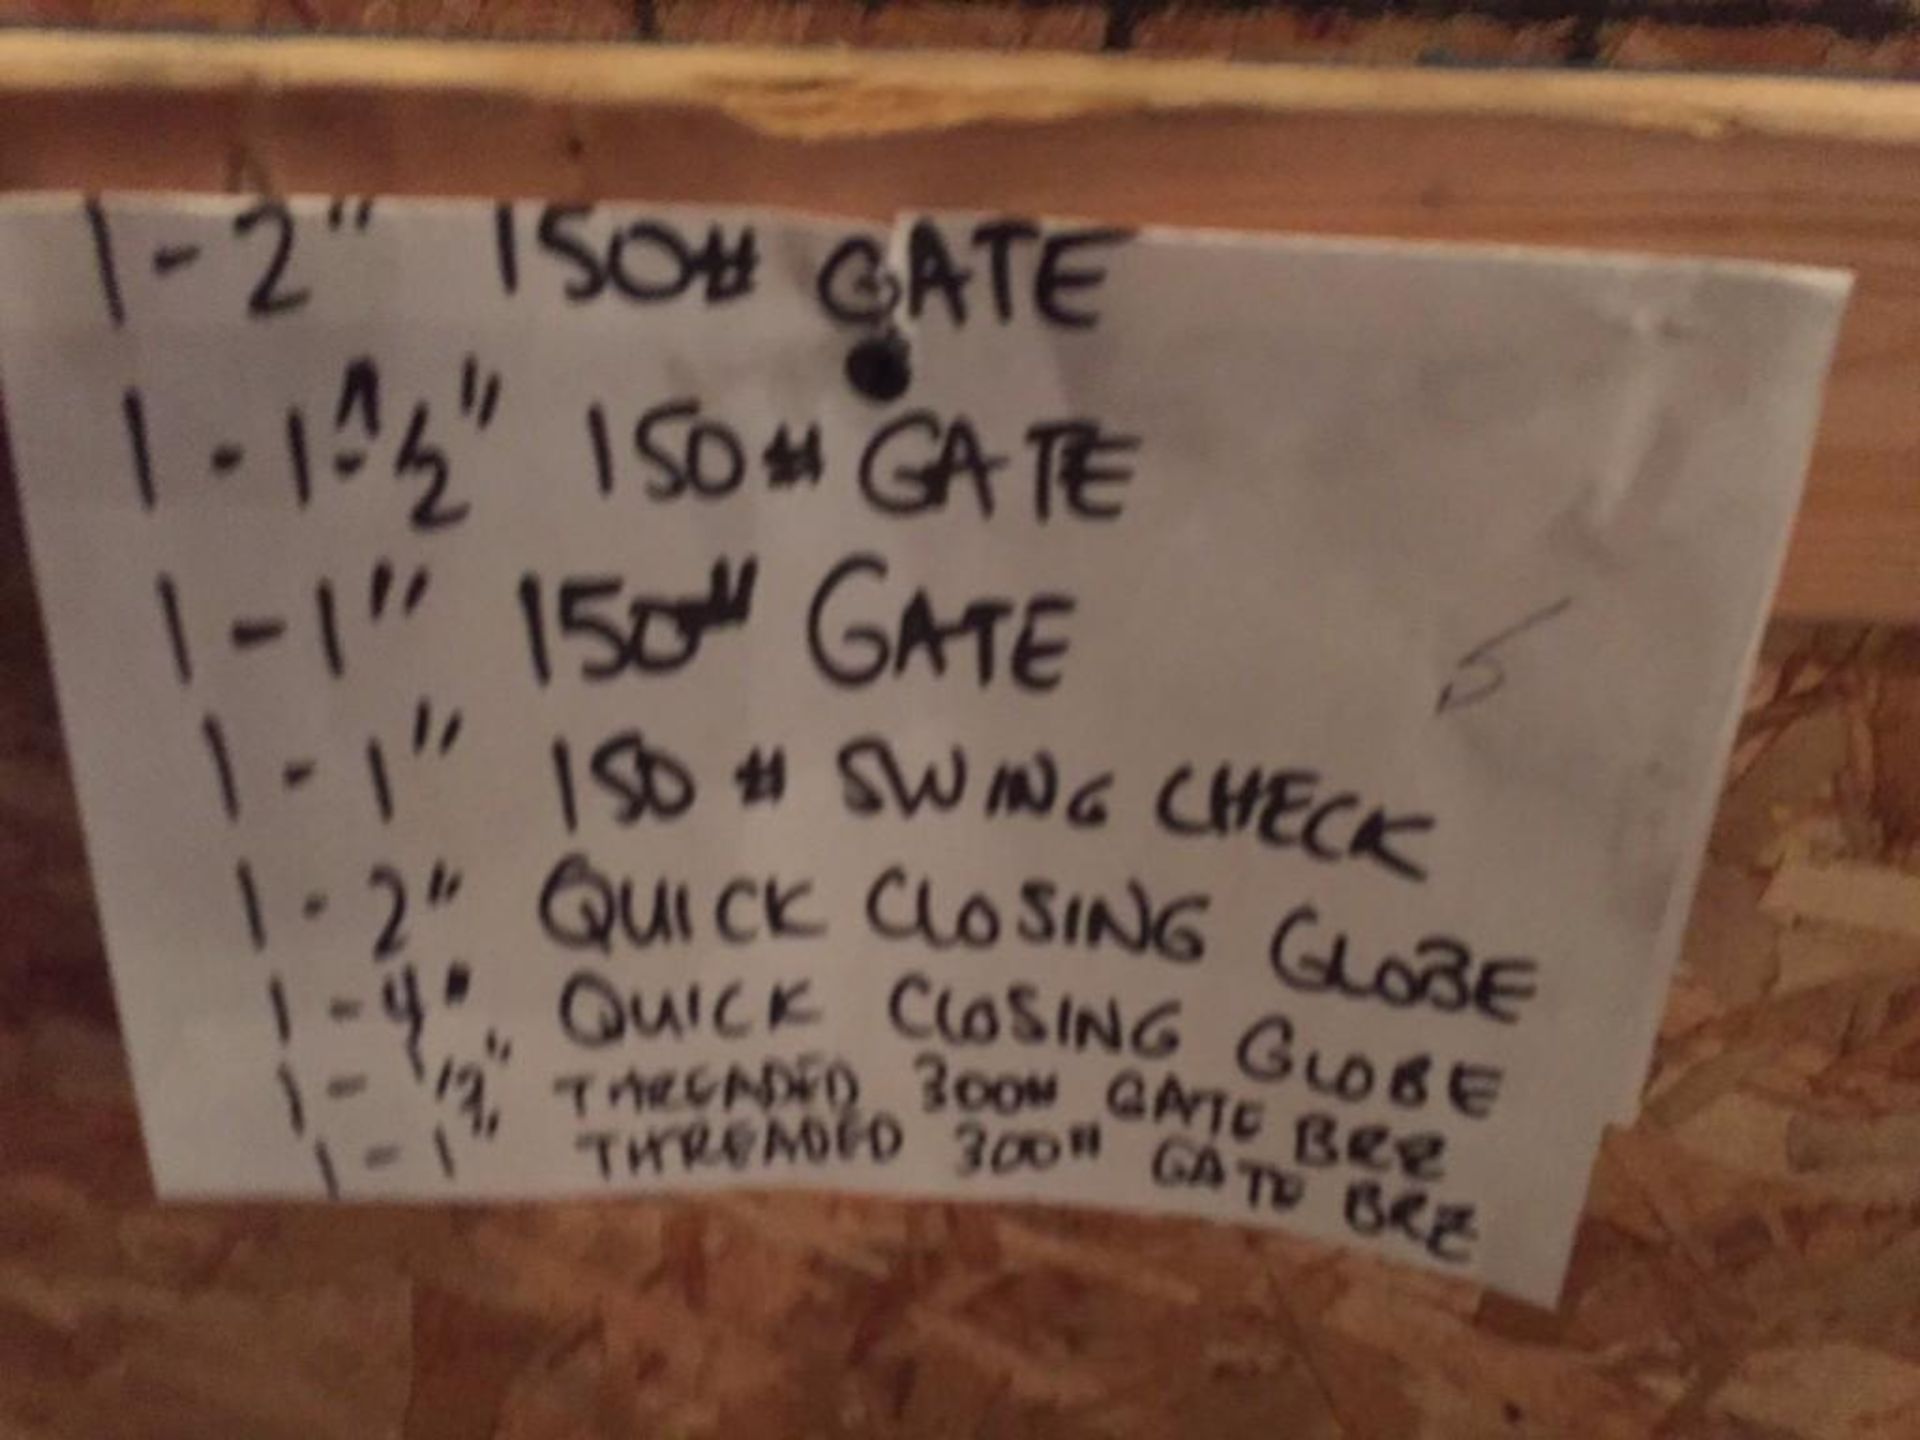 1-2" 150# GATE
1-1-1/2" 150# GATE
1-1" 150# GATE
1-1" 150# SWING CHECK
1-2" QUICK CLOSING GLOBE
1-4" QUICK CLOSING GLOBE
1-1/2" THREADED 300# GATE BRZ
1-1" THREADED 300# GATE BRZ